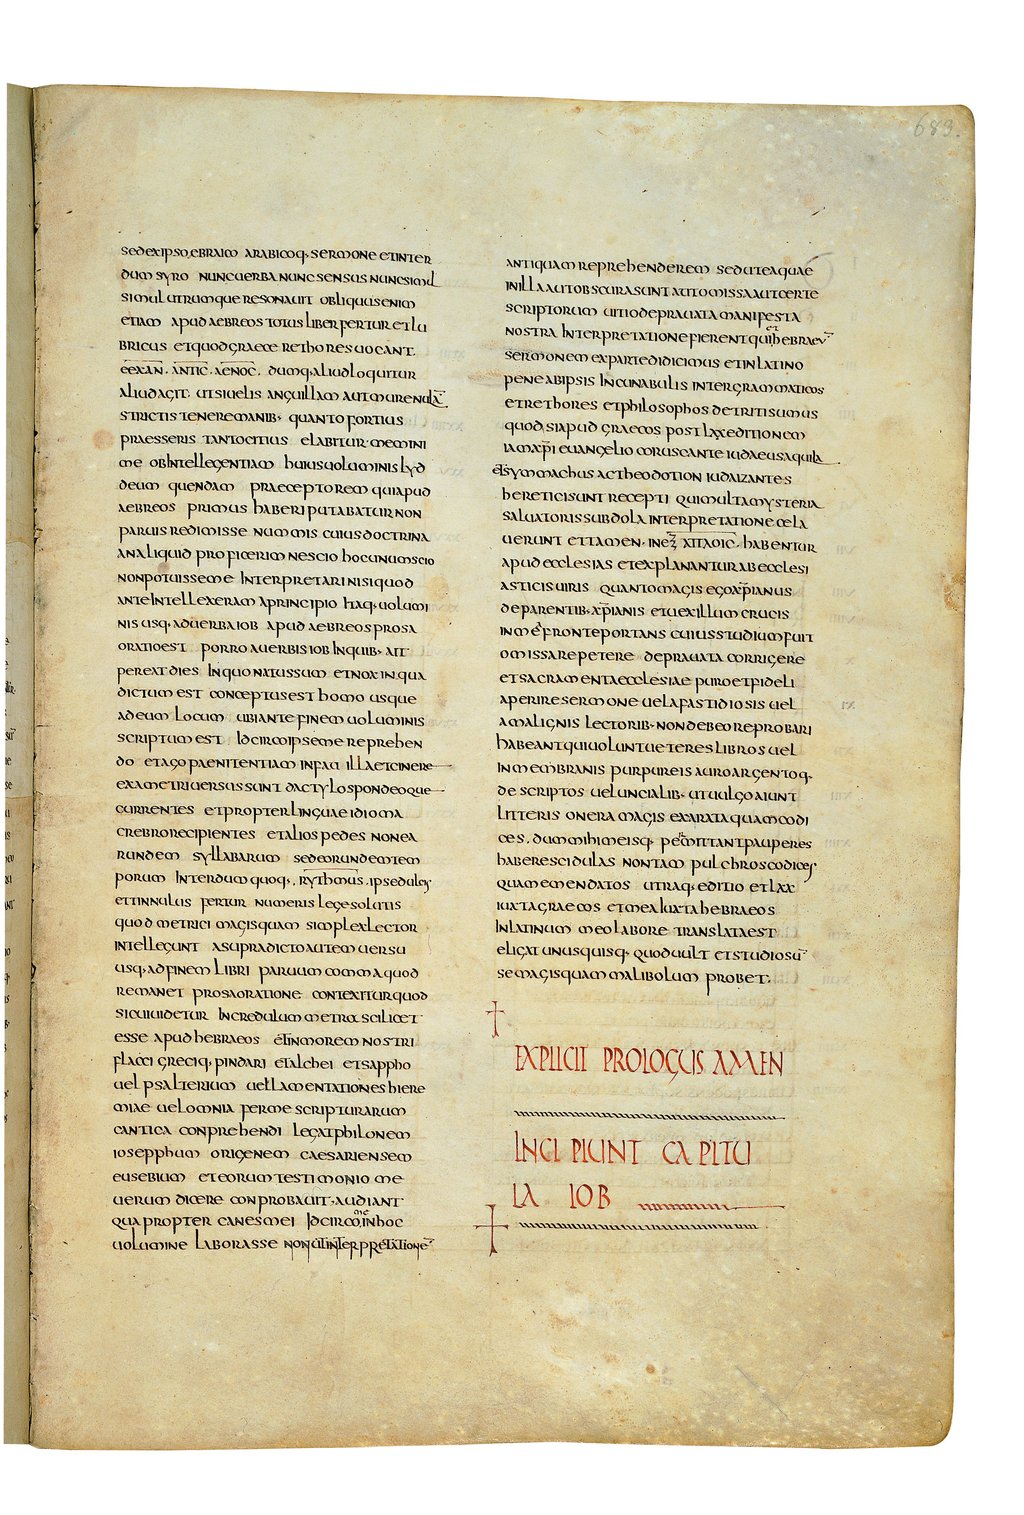 683.
sed ex ipso ebraico arabicoq· sermone et inter
dum syro nunc uerba nunc sensus nunc simul
simul utrumque resonauit obliquus enim
etiam apud aebreos totus liber fertur et lu
bricus et quod graece rethores uocant
dumq· aliud loquitur
aliud agit· ut si uelis anguillam aut murenulā
strictis tenere manib· quanto fortius
praesseris tanto citius elabitur· memini
me ob intellegentiam huius uoluminis lyd
deum quendam praeceptorem qui apud
aebreos primus haberi putabatur non
paruis redimisse nummis cuius doctrina
an aliquid proficerim nescio hoc unum scio
non potuisse me interpretari nisi quod
ante intellexeram a principio itaq· uolumi
nis usq· ad uerba iob apud aebreos prosa
oratio est porro a uerbis iob inquib· ait·
pereat dies in quo natus sum et nox in qua
dictum est conceptus est homo usque
ad eum locum ubi ante finem uoluminis
scriptum est idcirco ipse me reprehen
do et ago paenitentiam in faui illa et cinere
exametri uersus sunt dactylo spondeoque
currentes et propter linguae idioma
crebro recipientes et alios pedes non ea
rundem syllabarum sed eorundem tem
porum interdum quoq·, rythmus, ipse dulcis
et tinnulus fertur numeris lege solutis
quod metrici magis quam simplex lector
intellegunt a supradicto autem uersu
usq· ad finem libri paruum comma quod
remanet prosa oratione contexitur quod
si cui uidetur incredulum metra scilicet
esse apud hebraeos et in morem nostri
flacci greciq· pindari et alchei et sappho
uel psalterium uel lamentationes hiere
miae uel omnia ferme scripturarum
cantica conprehendi legat philonem
iosepphum origenem caesariensem
eusebium et eorum testimonio me
uerum dicere conprobauit· audiant
quapropter canes mei idcirco me in hoc
uolumine laborasse non ut interpretationē
antiquam reprehenderem sed ut ea quae
in illa aut obscura sunt aut omissa aut certe
scriptorum uitio deprauata manifesta
nostra interpretatione fierent qui et hebraeū
sermonem ex parte didicimus et in latino
pene ab ipsis incunabulis inter grammaticos
et rethores et philosophos detriti sumus
quod si apud graecos post lxx editionem
iam xp̄i euangelio coruscante iudaeus aquila
et symmachus ac theodotion iudaizantes
heretici sunt recepti qui multa mysteria
saluatoris subdola interpretatione cela
uerunt et tamen, in habentur
apud ecclesias et explanantur ab ecclesi
asticis uiris quanto magis ego xp̄ianus
de parentib· xp̄ianis et uexillum crucis
in mea fronte portans cuius studium fuit
omissa repetere deprauata corrigere
et sacramenta ecclesiae puro et fideli
aperire sermone uel a fastidiosis uel
a malignis lectorib· non debeo reprobari
habeant qui uolunt ueteres libros uel
in membranis purpureis auro argentoq·
descriptos uel uncialib· ut uulgo aiunt
litteris onera magis exarata quam codi
ces, dum mihi meisq· permittant pauperes
habere scidulas non tam pulchros codices
quam emendatos utraq· editio et lxx
iuxta graecos et mea iuxta hebraeos
in latinum meo labore translata est
eligat unusquisq· quod uult et studiosū
se magis quam malibolum probet·
EXPLICIT PROLOGUS AMEN
INCIPIUNT CAPITU
LA IOB